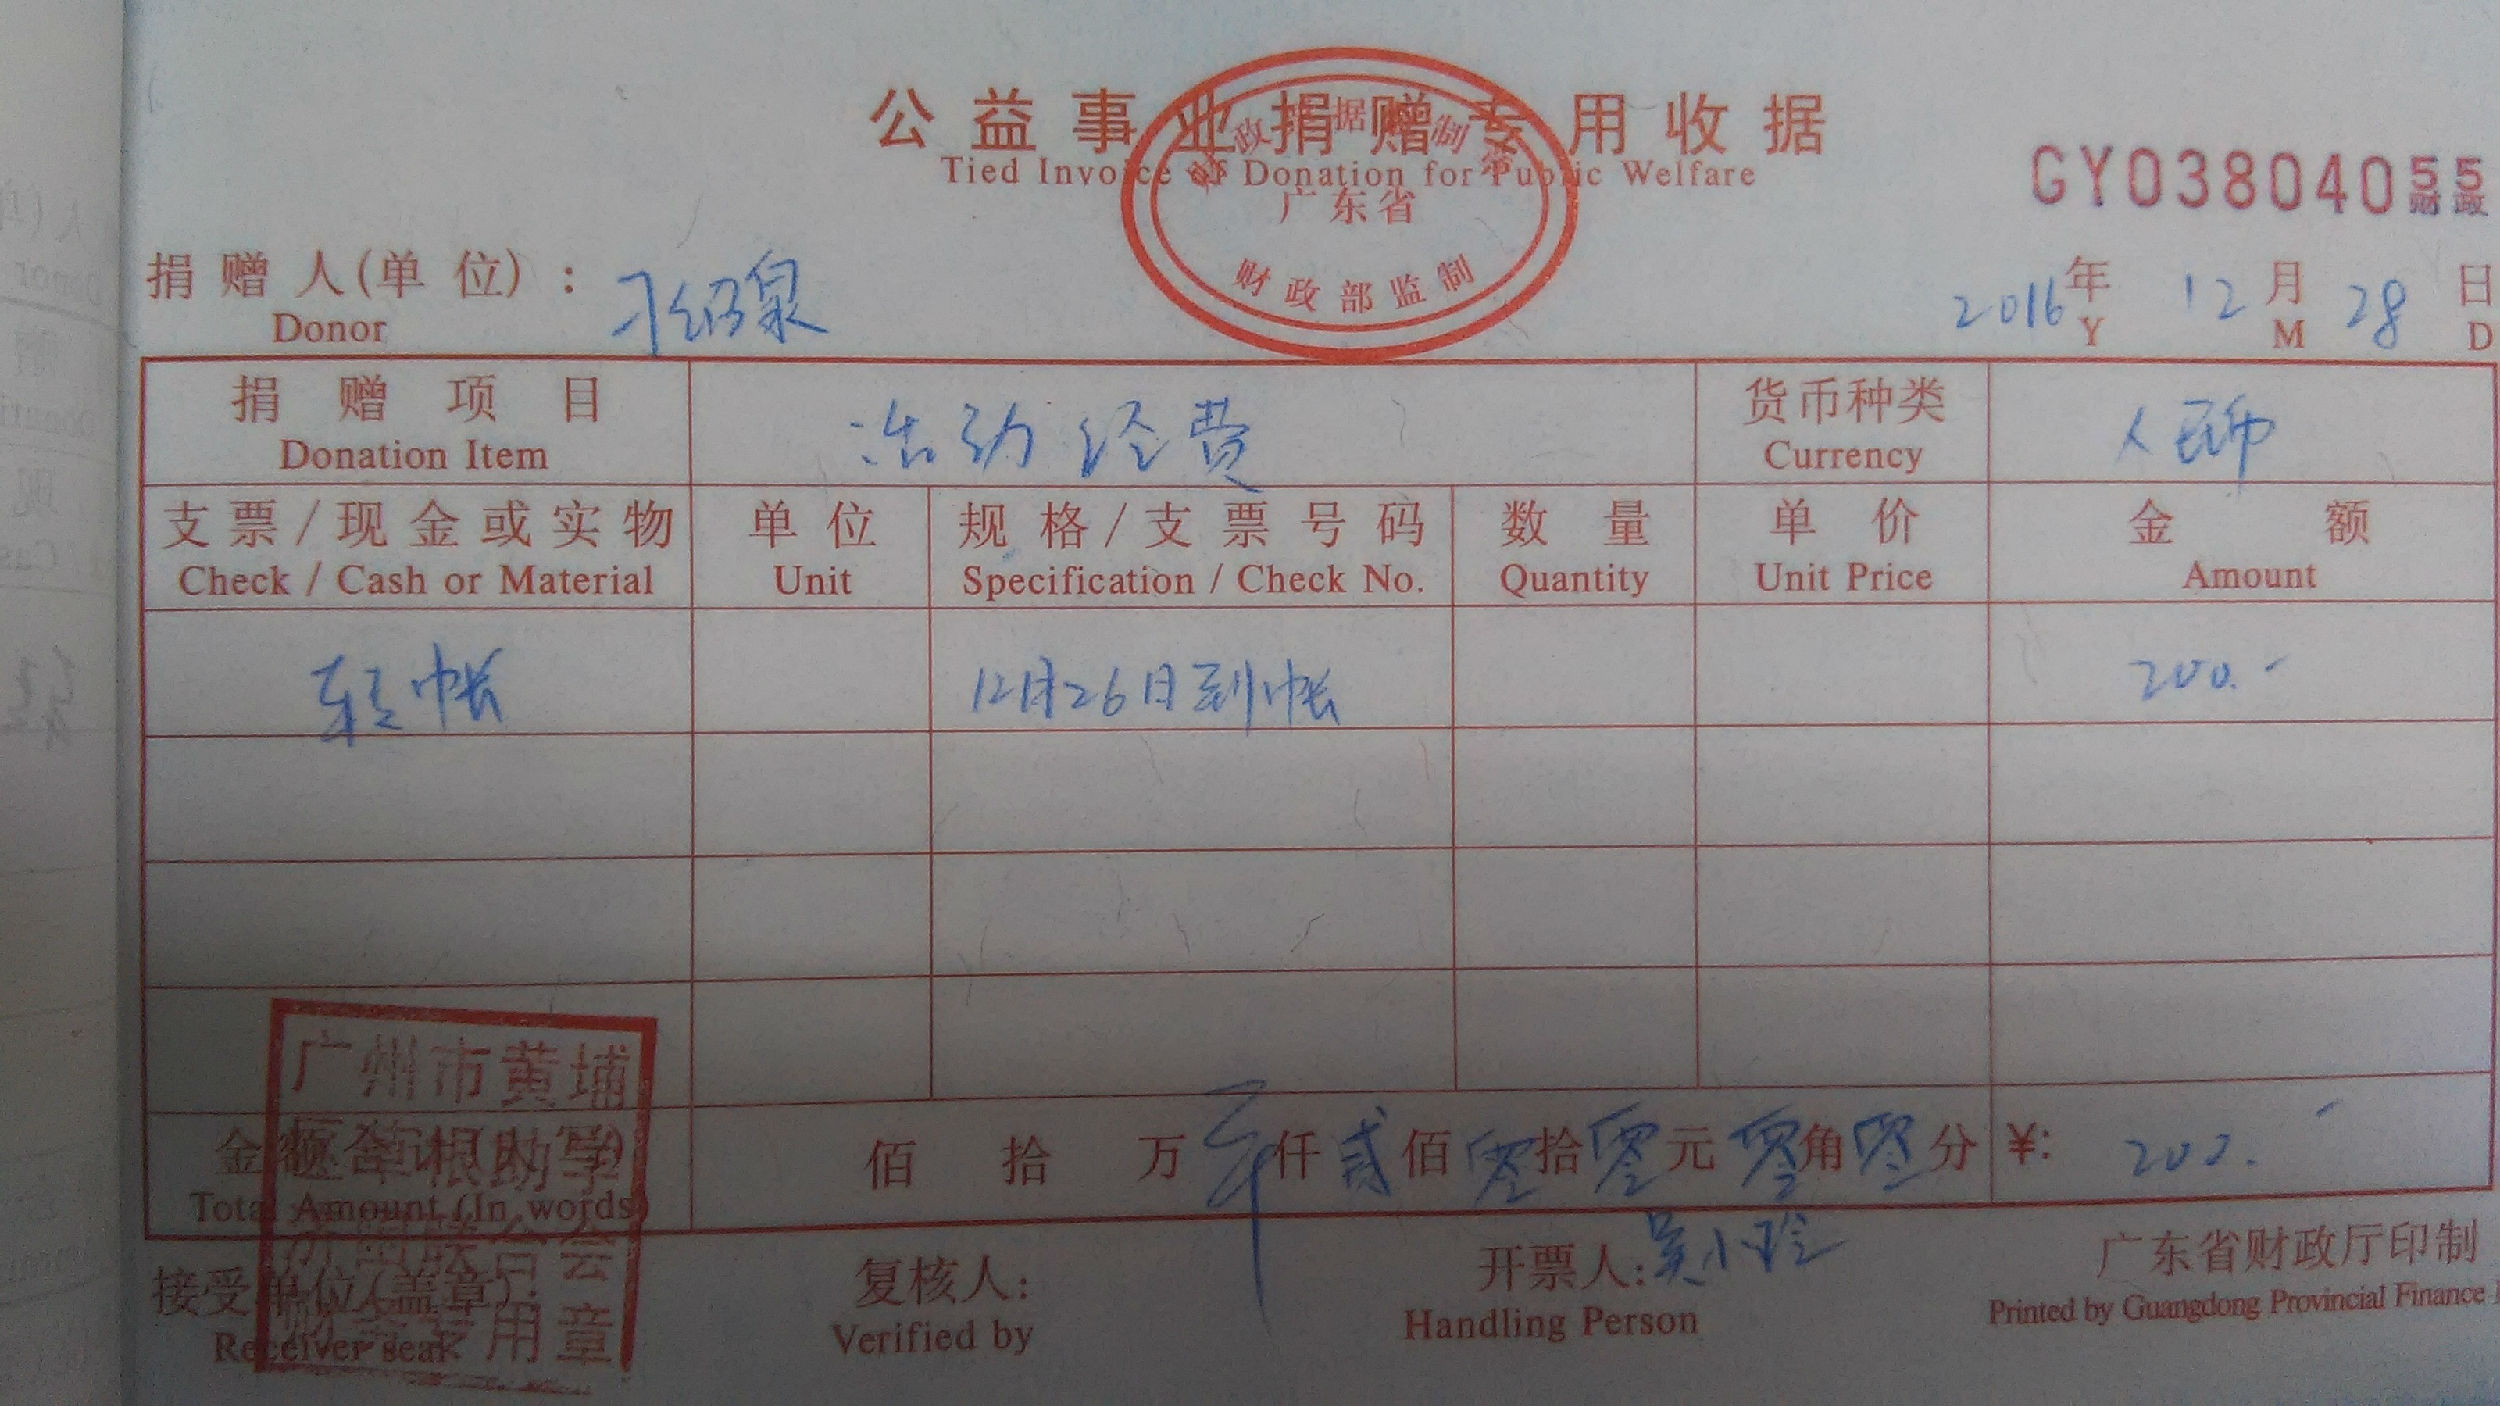 公益事业捐赠专用收据
Tied Invoice of Donation for Public Welfare
广东省
财政部监制
GY03804055
财政
捐赠人(单位): 刁绍泉
Donor
2016年 12月 28日
Y M D
捐赠项目 活动经费 货币种类 人民币
Donation Item Currency
支票/现金或实物 单位 规格/支票号码 数量 单价 金额
Check / Cash or Material Unit Specification / Check No. Quantity Unit Price Amount
转帐 12月26日到帐 200.-
金额合计(大写) 佰 拾 万 仟 贰佰 零拾 零元 零角 零分 ¥: 200.-
Total Amount (In words)
广州市黄埔
根助学
联合会
专用章
接受单位(盖章): 复核人: 开票人: 吴小玲 广东省财政厅印制
Receiver seal Verified by Handling Person Printed by Guangdong Provincial Finance